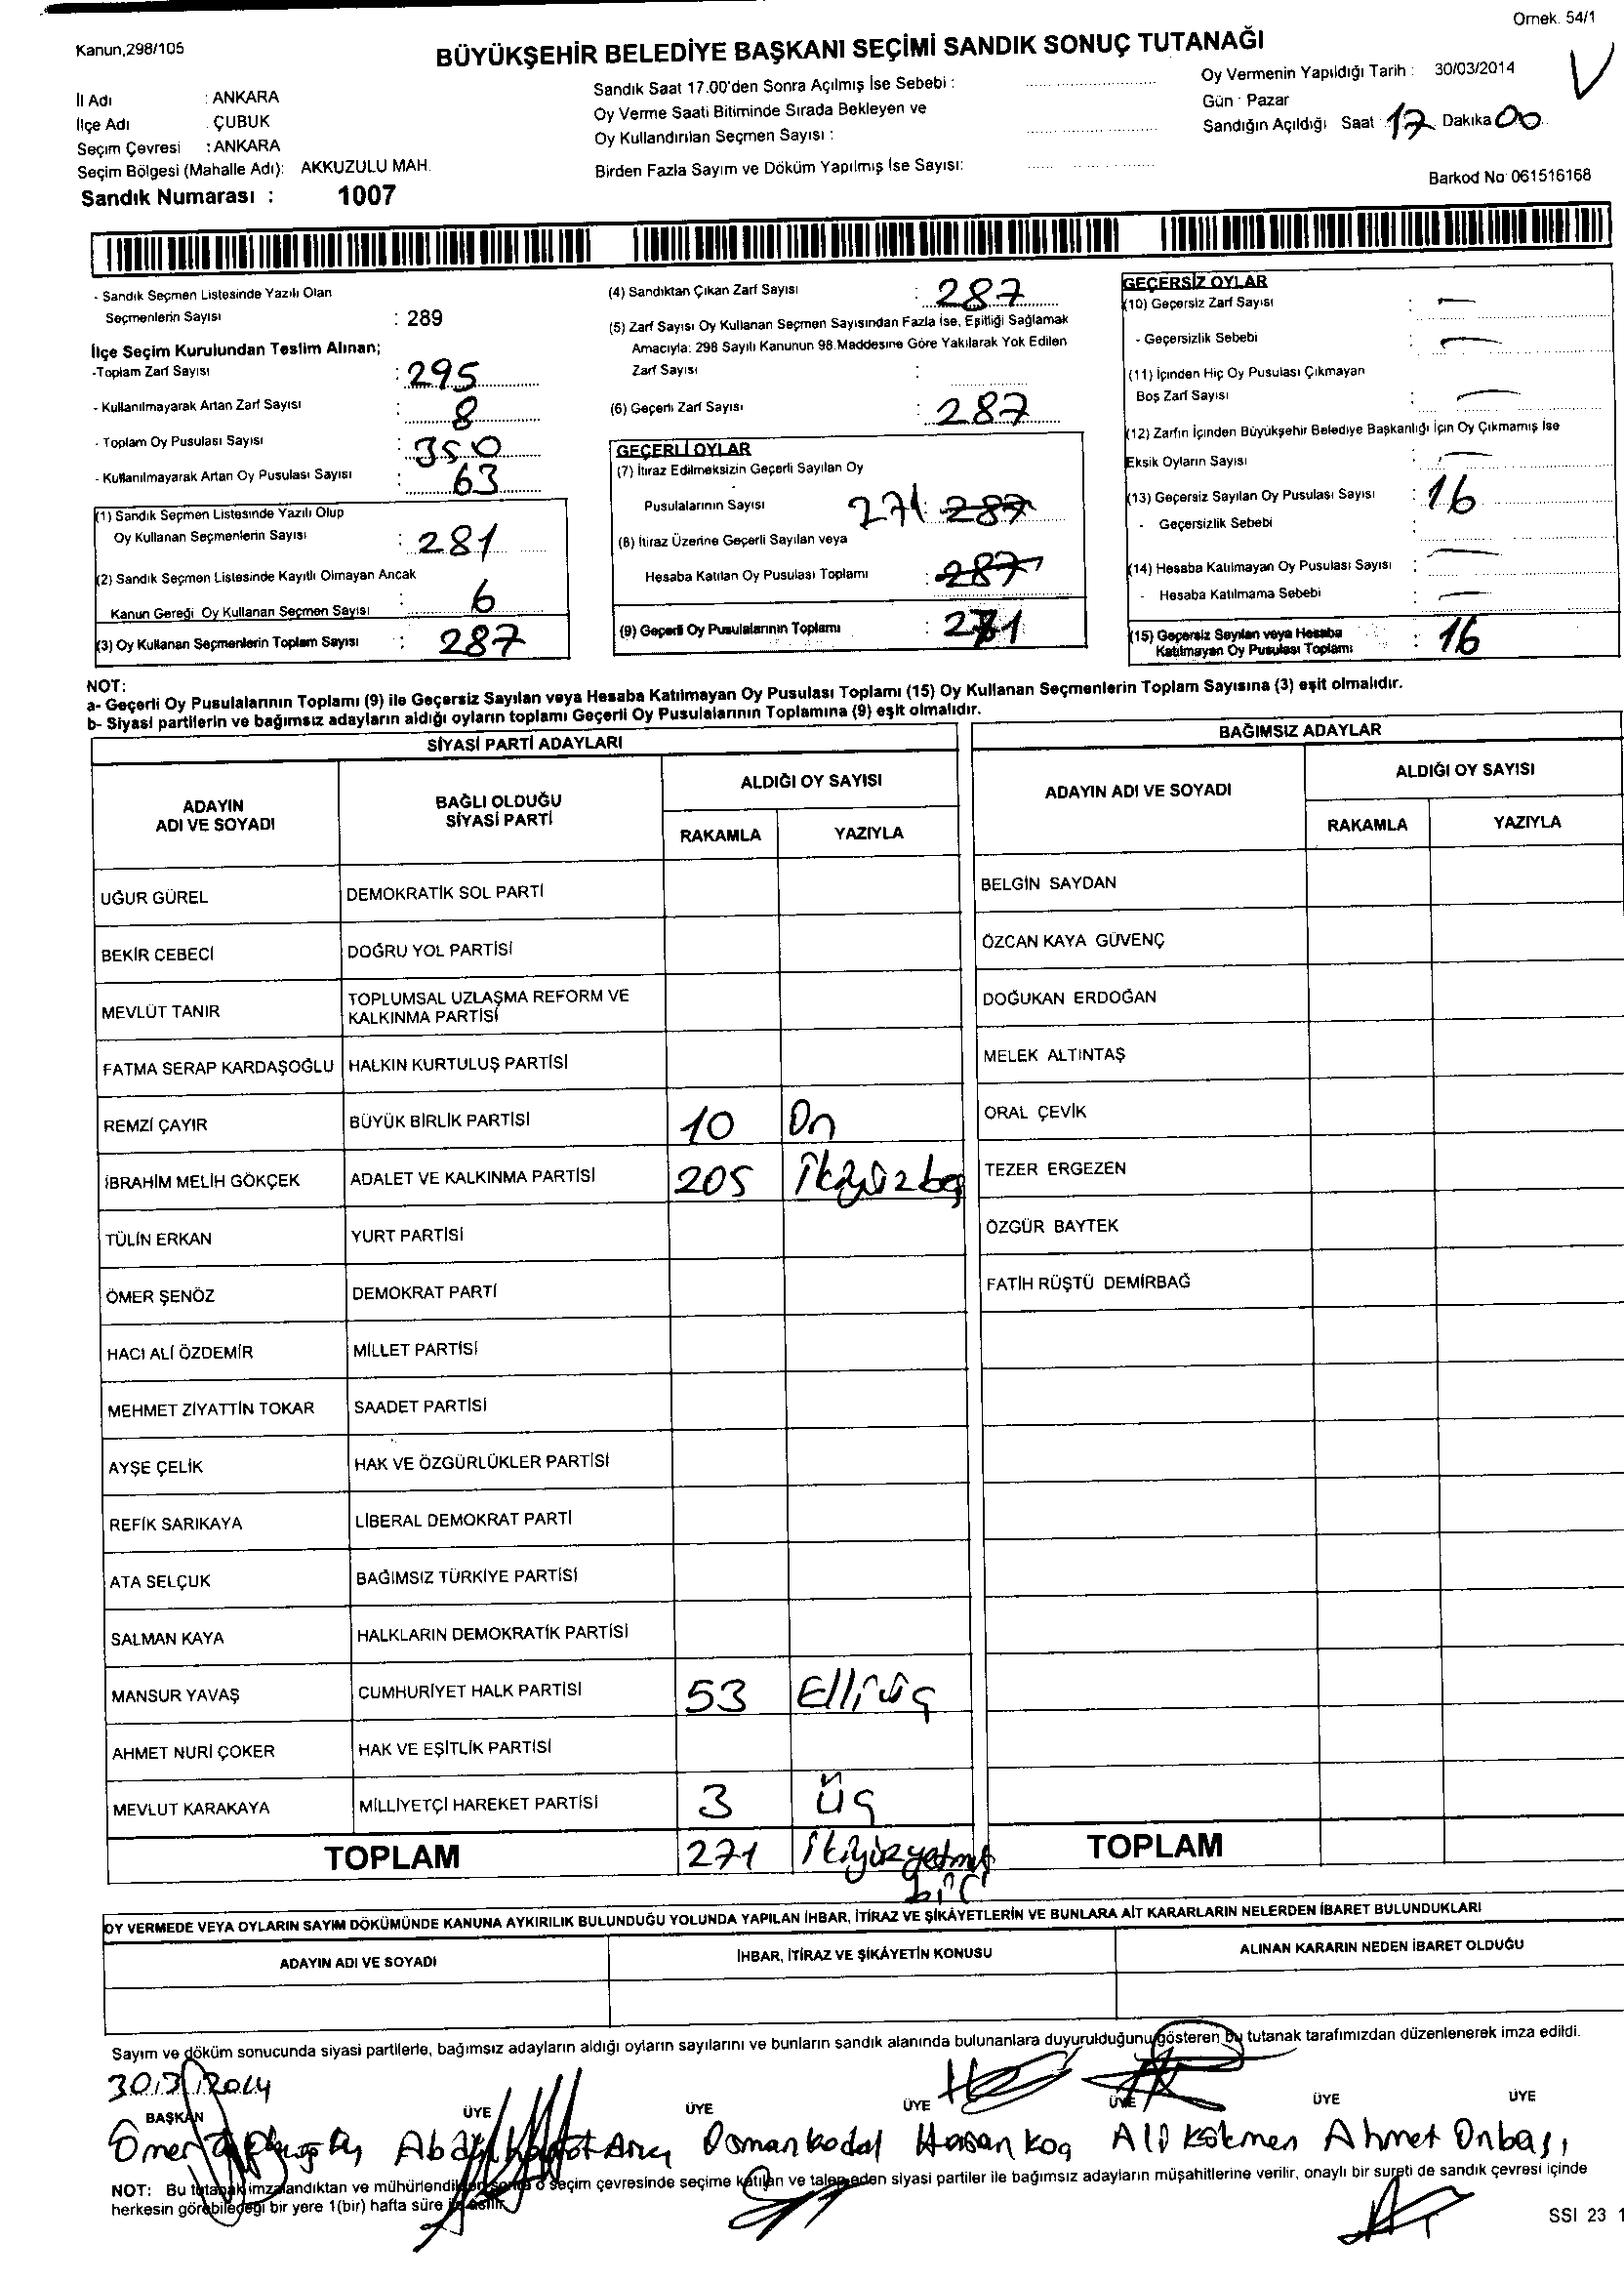 Örnek. 54/1
Kanun,298/105
BÜYÜKŞEHİR BELEDİYE BAŞKANI SEÇİMİ SANDIK SONUÇ TUTANAĞI
İl Adı : ANKARA
İlçe Adı : ÇUBUK
Seçim Çevresi : ANKARA
Seçim Bölgesi (Mahalle Adı): AKKUZULU MAH.
Sandık Numarası : 1007
Sandık Saat 17.00'den Sonra Açılmış İse Sebebi :
Oy Verme Saati Bitiminde Sırada Bekleyen ve
Oy Kullandırılan Seçmen Sayısı :
Birden Fazla Sayım ve Döküm Yapılmış İse Sayısı:
Oy Vermenin Yapıldığı Tarih : 30/03/2014
Gün : Pazar
Sandığın Açıldığı Saat 17 Dakika 00
Barkod No: 061516168
- Sandık Seçmen Listesinde Yazılı Olan
Seçmenlerin Sayısı : 289
İlçe Seçim Kurulundan Teslim Alınan;
-Toplam Zarf Sayısı : 295
- Kullanılmayarak Artan Zarf Sayısı : 8
- Toplam Oy Pusulası Sayısı : 350
- Kullanılmayarak Artan Oy Pusulası Sayısı : 63
(1) Sandık Seçmen Listesinde Yazılı Olup
Oy Kullanan Seçmenlerin Sayısı : 281
(2) Sandık Seçmen Listesinde Kayıtlı Olmayan Ancak
Kanun Gereği Oy Kullanan Seçmen Sayısı : 6
(3) Oy Kullanan Seçmenlerin Toplam Sayısı : 287
(4) Sandıktan Çıkan Zarf Sayısı : 287
(5) Zarf Sayısı Oy Kullanan Seçmen Sayısından Fazla İse, Eşitliği Sağlamak
Amacıyla: 298 Sayılı Kanunun 98.Maddesine Göre Yakılarak Yok Edilen
Zarf Sayısı :
(6) Geçerli Zarf Sayısı : 287
GEÇERLİ OYLAR
(7) İtiraz Edilmeksizin Geçerli Sayılan Oy
Pusulalarının Sayısı 271 : 287
(8) İtiraz Üzerine Geçerli Sayılan veya
Hesaba Katılan Oy Pusulası Toplamı : 287
(9) Geçerli Oy Pusulalarının Toplamı : 271
GEÇERSİZ OYLAR
(10) Geçersiz Zarf Sayısı : —
- Geçersizlik Sebebi : —
(11) İçinden Hiç Oy Pusulası Çıkmayan
Boş Zarf Sayısı : —
(12) Zarfın İçinden Büyükşehir Belediye Başkanlığı İçin Oy Çıkmamış İse
Eksik Oyların Sayısı : —
(13) Geçersiz Sayılan Oy Pusulası Sayısı : 16
- Geçersizlik Sebebi :
(14) Hesaba Katılmayan Oy Pusulası Sayısı : —
- Hesaba Katılmama Sebebi : —
(15) Geçersiz Sayılan veya Hesaba
Katılmayan Oy Pusulası Toplamı : 16
NOT:
a- Geçerli Oy Pusulalarının Toplamı (9) ile Geçersiz Sayılan veya Hesaba Katılmayan Oy Pusulası Toplamı (15) Oy Kullanan Seçmenlerin Toplam Sayısına (3) eşit olmalıdır.
b- Siyasi partilerin ve bağımsız adayların aldığı oyların toplamı Geçerli Oy Pusulalarının Toplamına (9) eşit olmalıdır.
SİYASİ PARTİ ADAYLARI
ADAYIN
ADI VE SOYADI
BAĞLI OLDUĞU
SİYASİ PARTİ
ALDIĞI OY SAYISI
RAKAMLA YAZIYLA
UĞUR GÜREL DEMOKRATİK SOL PARTİ
BEKİR CEBECİ DOĞRU YOL PARTİSİ
MEVLÜT TANIR TOPLUMSAL UZLAŞMA REFORM VE
KALKINMA PARTİSİ
FATMA SERAP KARDAŞOĞLU HALKIN KURTULUŞ PARTİSİ
REMZİ ÇAYIR BÜYÜK BİRLİK PARTİSİ 10 On
İBRAHİM MELİH GÖKÇEK ADALET VE KALKINMA PARTİSİ 205 İkiyüzbeş
TÜLİN ERKAN YURT PARTİSİ
ÖMER ŞENÖZ DEMOKRAT PARTİ
HACI ALİ ÖZDEMİR MİLLET PARTİSİ
MEHMET ZİYATTİN TOKAR SAADET PARTİSİ
AYŞE ÇELİK HAK VE ÖZGÜRLÜKLER PARTİSİ
REFİK SARIKAYA LİBERAL DEMOKRAT PARTİ
ATA SELÇUK BAĞIMSIZ TÜRKİYE PARTİSİ
SALMAN KAYA HALKLARIN DEMOKRATİK PARTİSİ
MANSUR YAVAŞ CUMHURİYET HALK PARTİSİ 53 Elliüç
AHMET NURİ ÇOKER HAK VE EŞİTLİK PARTİSİ
MEVLUT KARAKAYA MİLLİYETÇİ HAREKET PARTİSİ 3 Üç
TOPLAM 271 İkiyüzyetmiş
bir
BAĞIMSIZ ADAYLAR
ADAYIN ADI VE SOYADI
ALDIĞI OY SAYISI
RAKAMLA YAZIYLA
BELGİN SAYDAN
ÖZCAN KAYA GÜVENÇ
DOĞUKAN ERDOĞAN
MELEK ALTINTAŞ
ORAL ÇEVİK
TEZER ERGEZEN
ÖZGÜR BAYTEK
FATİH RÜŞTÜ DEMİRBAĞ
TOPLAM
OY VERMEDE VEYA OYLARIN SAYIM DÖKÜMÜNDE KANUNA AYKIRILIK BULUNDUĞU YOLUNDA YAPILAN İHBAR, İTİRAZ VE ŞİKÂYETLERİN VE BUNLARA AİT KARARLARIN NELERDEN İBARET BULUNDUKLARI
ADAYIN ADI VE SOYADI İHBAR, İTİRAZ VE ŞİKÂYETİN KONUSU ALINAN KARARIN NEDEN İBARET OLDUĞU
Sayım ve döküm sonucunda siyasi partilerle, bağımsız adayların aldığı oyların sayılarını ve bunların sandık alanında bulunanlara duyurulduğunu gösteren bu tutanak tarafımızdan düzenlenerek imza edildi.
30/3/2014
BAŞKAN ÜYE ÜYE ÜYE ÜYE ÜYE ÜYE
Ömer Osman Hasan Koç Ali Kökmen Ahmet Onbaşı
NOT: Bu tutanak imzalandıktan ve mühürlendikten sonra o seçim çevresinde seçime katılan ve talep eden siyasi partiler ile bağımsız adayların müşahitlerine verilir, onaylı bir sureti de sandık çevresi içinde
herkesin görebileceği bir yere 1(bir) hafta süre ile asılır.
SSI 23 1